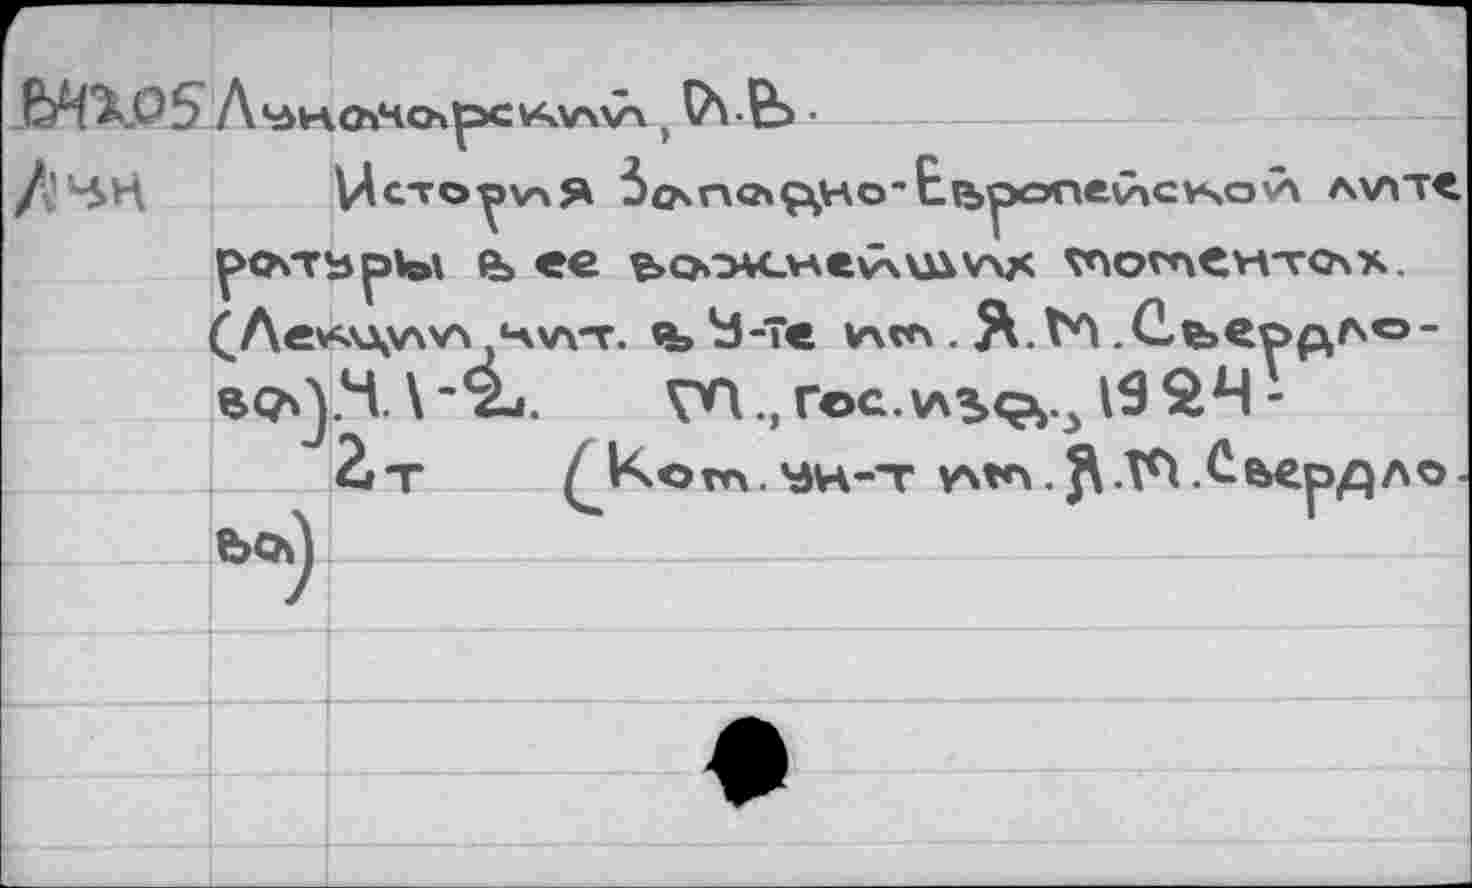 Луначарский, А.В.
Лун История Западно-Европейской лите
ратуры в ее важнейших моментах.
(Лекции, чит. в У-те им. Я.М.Свердло-
ва).Ч.1-2. М., Гос.изд., 1924-
2т (Ком. ун-т им. Я.М.Свердло-
ва)